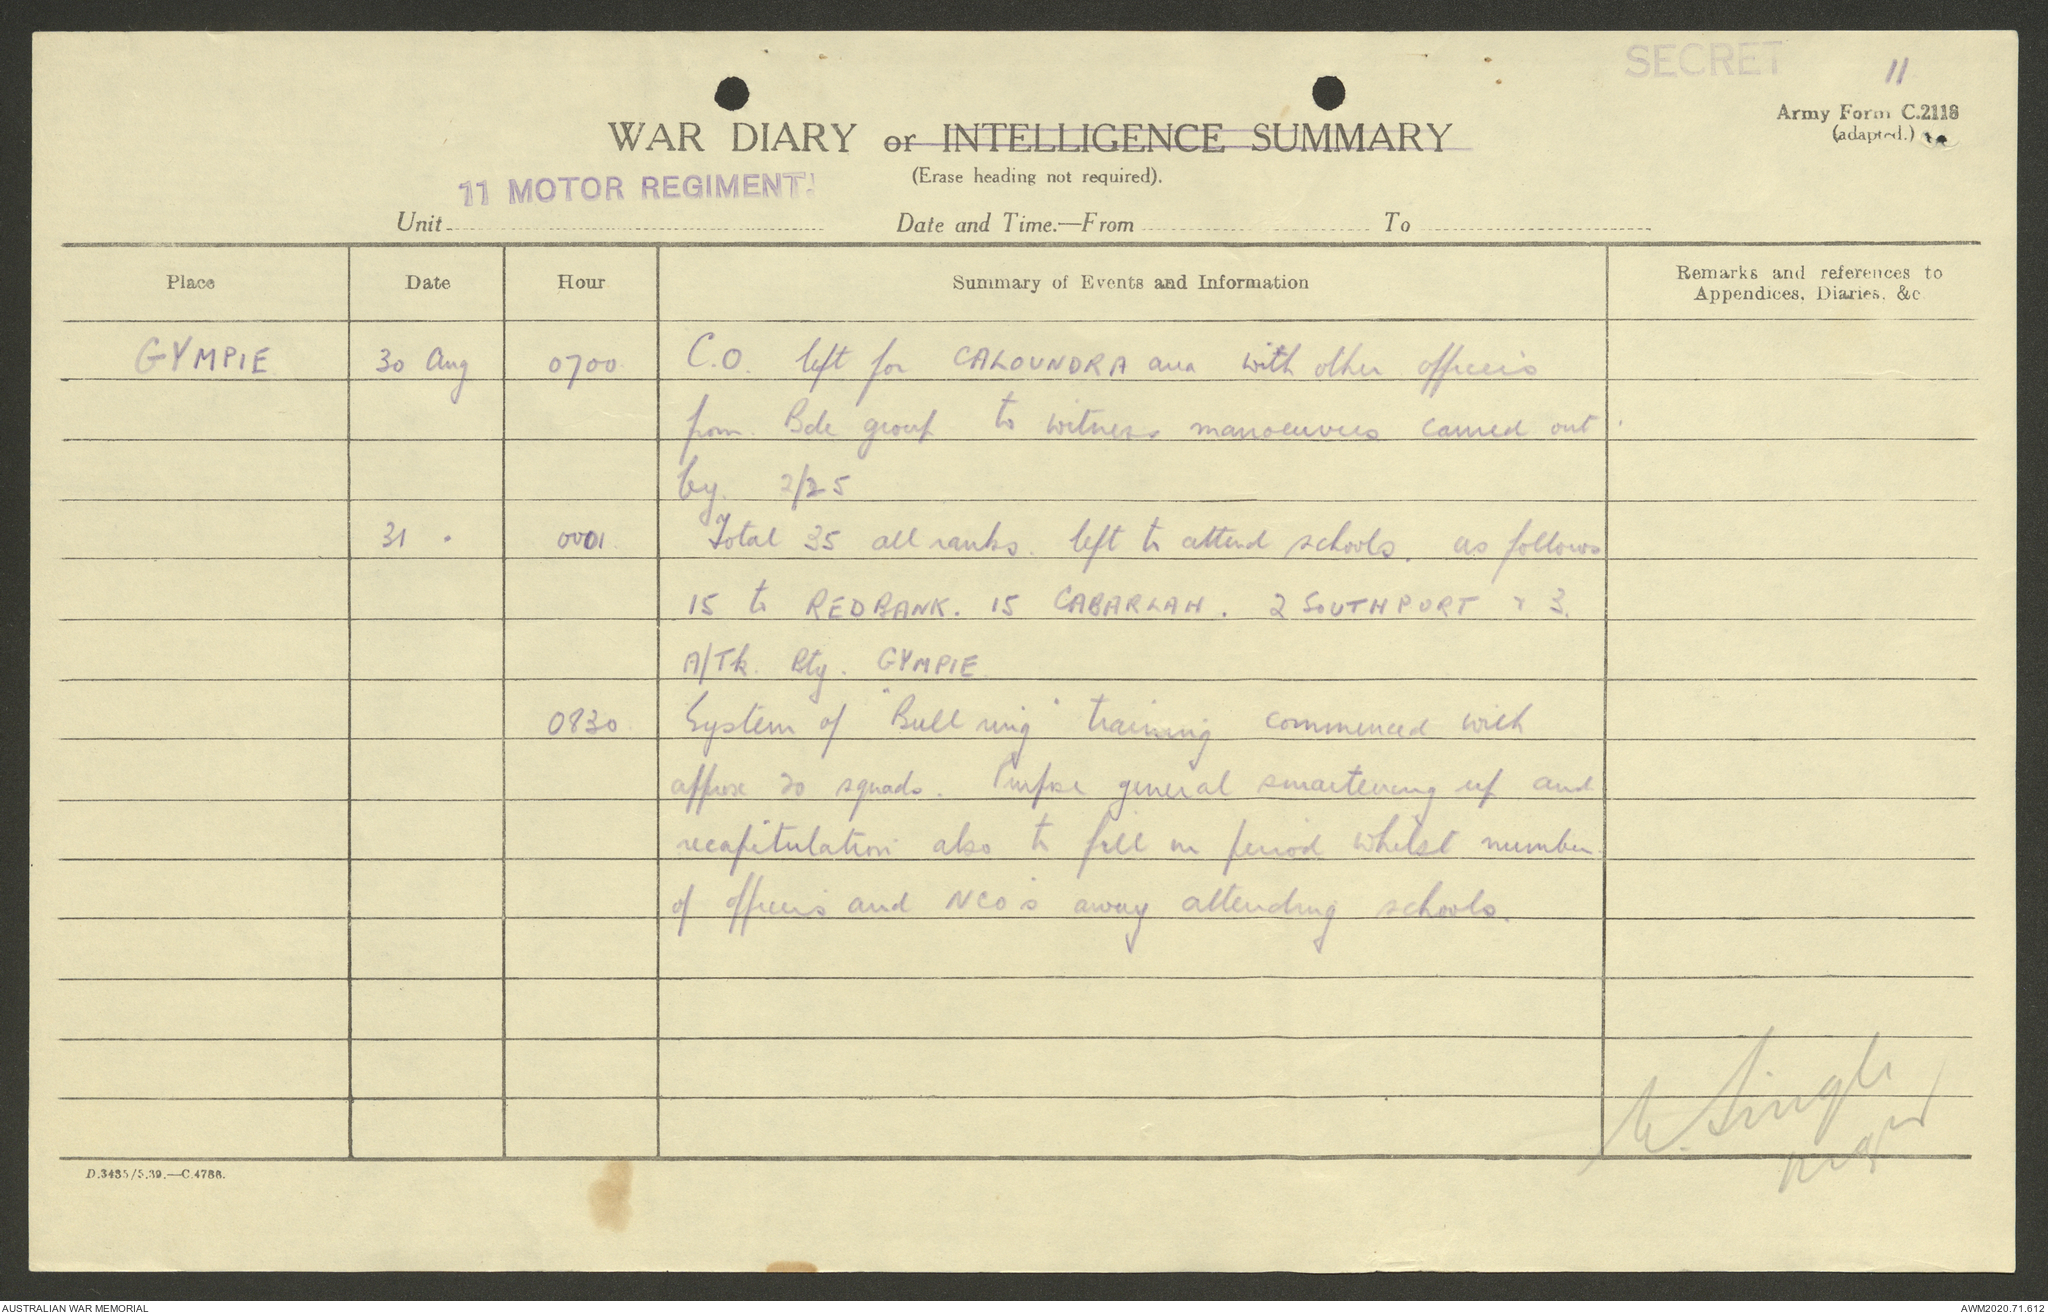 SECRET
11
Army Form C.2118
(adapted.)
WAR DIARY or INTELLIGENCE SUMMARY
(Erase heading not required).
11 MOTOR REGIMENT.
Unit
Date and Time.—From
To
Place
Date
Hour
Summary of Events and Information
Remarks and references to
Appendices, Diaries, &c.
GYMPIE 30 Aug 0700 C.O. left for CALOUNDRA area with other officers
from Bde group to witness manoeuvres carried out
by 2/25
31 " 0001 Total 35 all ranks left to attend schools. as follows
15 to REDBANK. 15 CABARLAH. 2 SOUTHPORT & 3.
A/Tk. Bty. GYMPIE
0830 System of "Bull ring" training commenced with
approx 20 squads. Purpose general smartening up and
recapitulation also to fill in period whilst number
of officers and NCO's away attending schools.
D.3435/5.39.—C.4788.
AUSTRALIAN WAR MEMORIAL
AWM2020.71.612